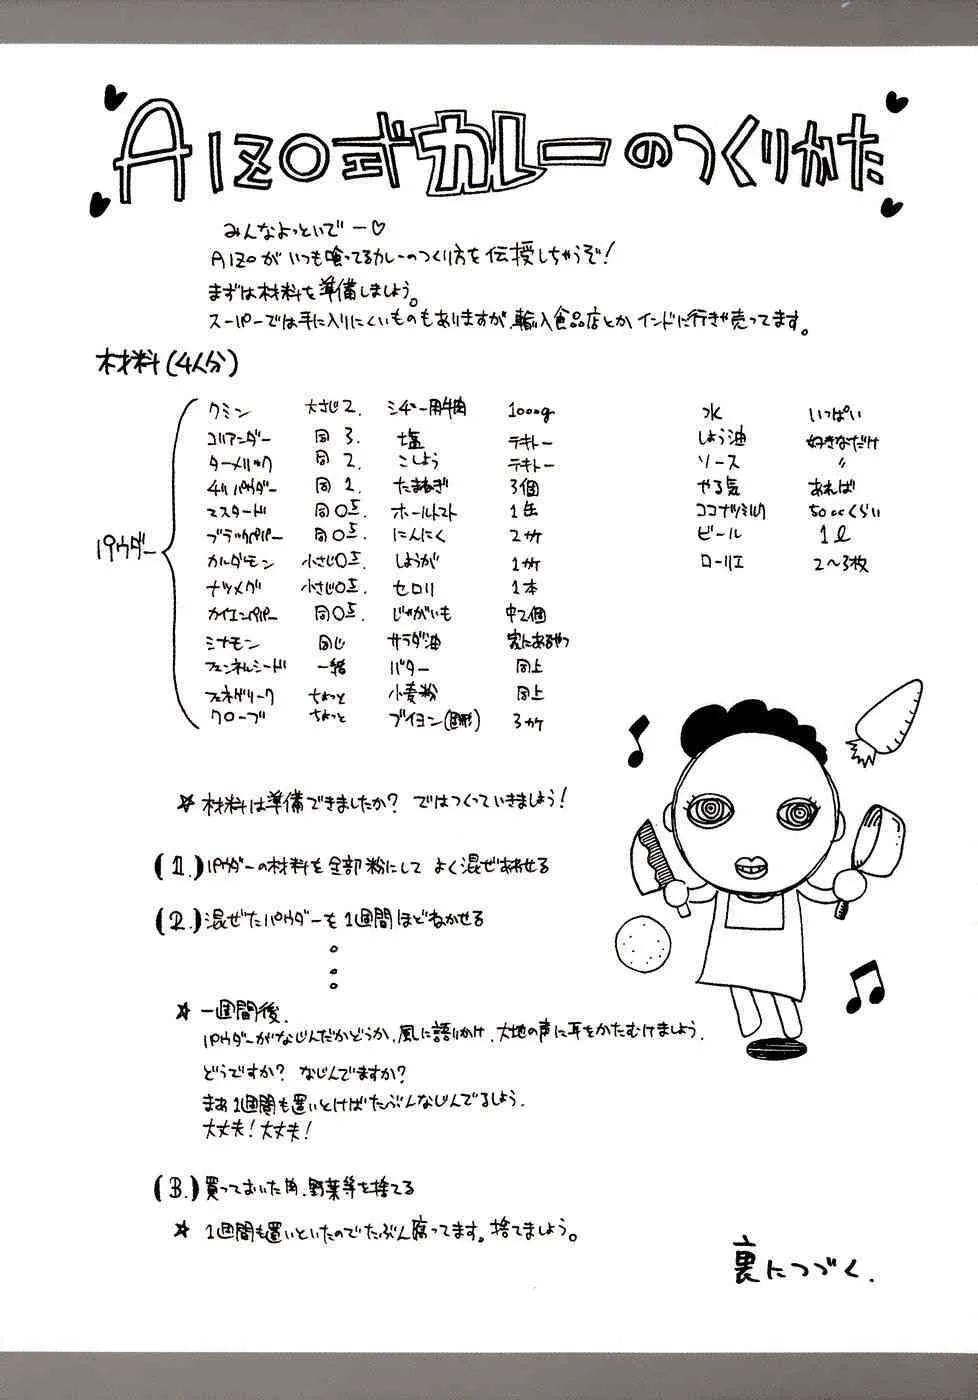 AIZO式カレーのつくりかた
みんなよっといでー♡
AIZOがいつも喰ってるカレーのつくり方を伝授しちゃうぞ！
まずは材料を準備しましょう。
スーパーでは手に入りにくいものもありますが、輸入食品店とかインドに行きゃ売ってます。
材料(4人分)
パウダー
クミン 大さじ2.
コリアンダー 同 3.
ターメリック 同 2.
チリパウダー 同 1.
マスタード 同0.5.
ブラックペパー 同0.5.
カルダモン 小さじ0.5
ナツメグ 小さじ0.5
カイエンペパー 同0.5.
シナモン 同じ
フェンネルシード 一緒
フェネグリーク ちょっと
クローブ ちょっと
シチュー用牛肉 1000g
塩 テキトー
こしょう テキトー
たまねぎ 3個
ホールトマト 1缶
にんにく 2ヶケ
しょうが 1ヶケ
セロリ 1本
じゃがいも 中2個
サラダ油 家にあるやつ
バター 同上
小麦粉 同上
ブイヨン(固形) 3ヶケ
水 いっぱい
しょう油 好きなだけ
ソース 〃
やる気 あれば
ココナツミルク 50ccくらい
ビール 1ℓ
ローリエ 2〜3枚
☆ 材料は準備できましたか？ ではつくっていきましょう！
(1.) パウダーの材料を全部粉にして よく混ぜあわせる
(2.) 混ぜたパウダーを1週間ほどねかせる
☆ 一週間後.
パウダーがなじんだかどうか、風に語りかけ、大地の声に耳をかたむけましょう.
どうですか？ なじんでますか？
まあ1週間も置いとけばたぶんなじんでるしょう.
大丈夫！大丈夫！
(3.) 買っておいた肉、野菜等を捨てる
☆ 1週間も置いといたのでたぶん腐ってます。捨てましょう。
裏につづく.